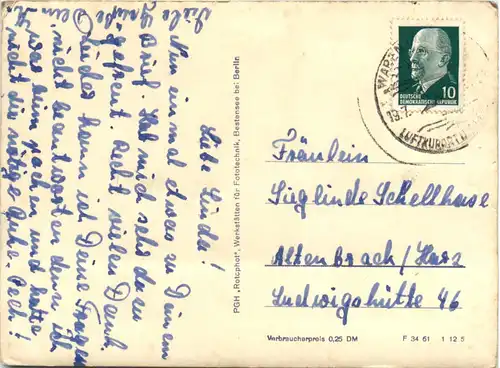 Liebe Linda!
Nun einmal etwas zu Deinem
Brief. Hab mich sehr dazu
gefreut. Recht vielen Dank.
Leider kann ich Deine Fragen
nicht beantworten denn ich
war beim packen und hatte
nicht die nötige Ruhe. Pech!
Viele
Grüße
Dein
PGH „Rotophot", Werkstätten für Fototechnik, Bestensee bei Berlin
DEUTSCHE
DEMOKRATISCHE REPUBLIK
10
LUFTKURORT
Fräulein
Sieglinde Schellhase
Altenbrach/Harz
Ludwigshütte 46
Verbraucherpreis 0,25 DM
F 34 61 1 12 5